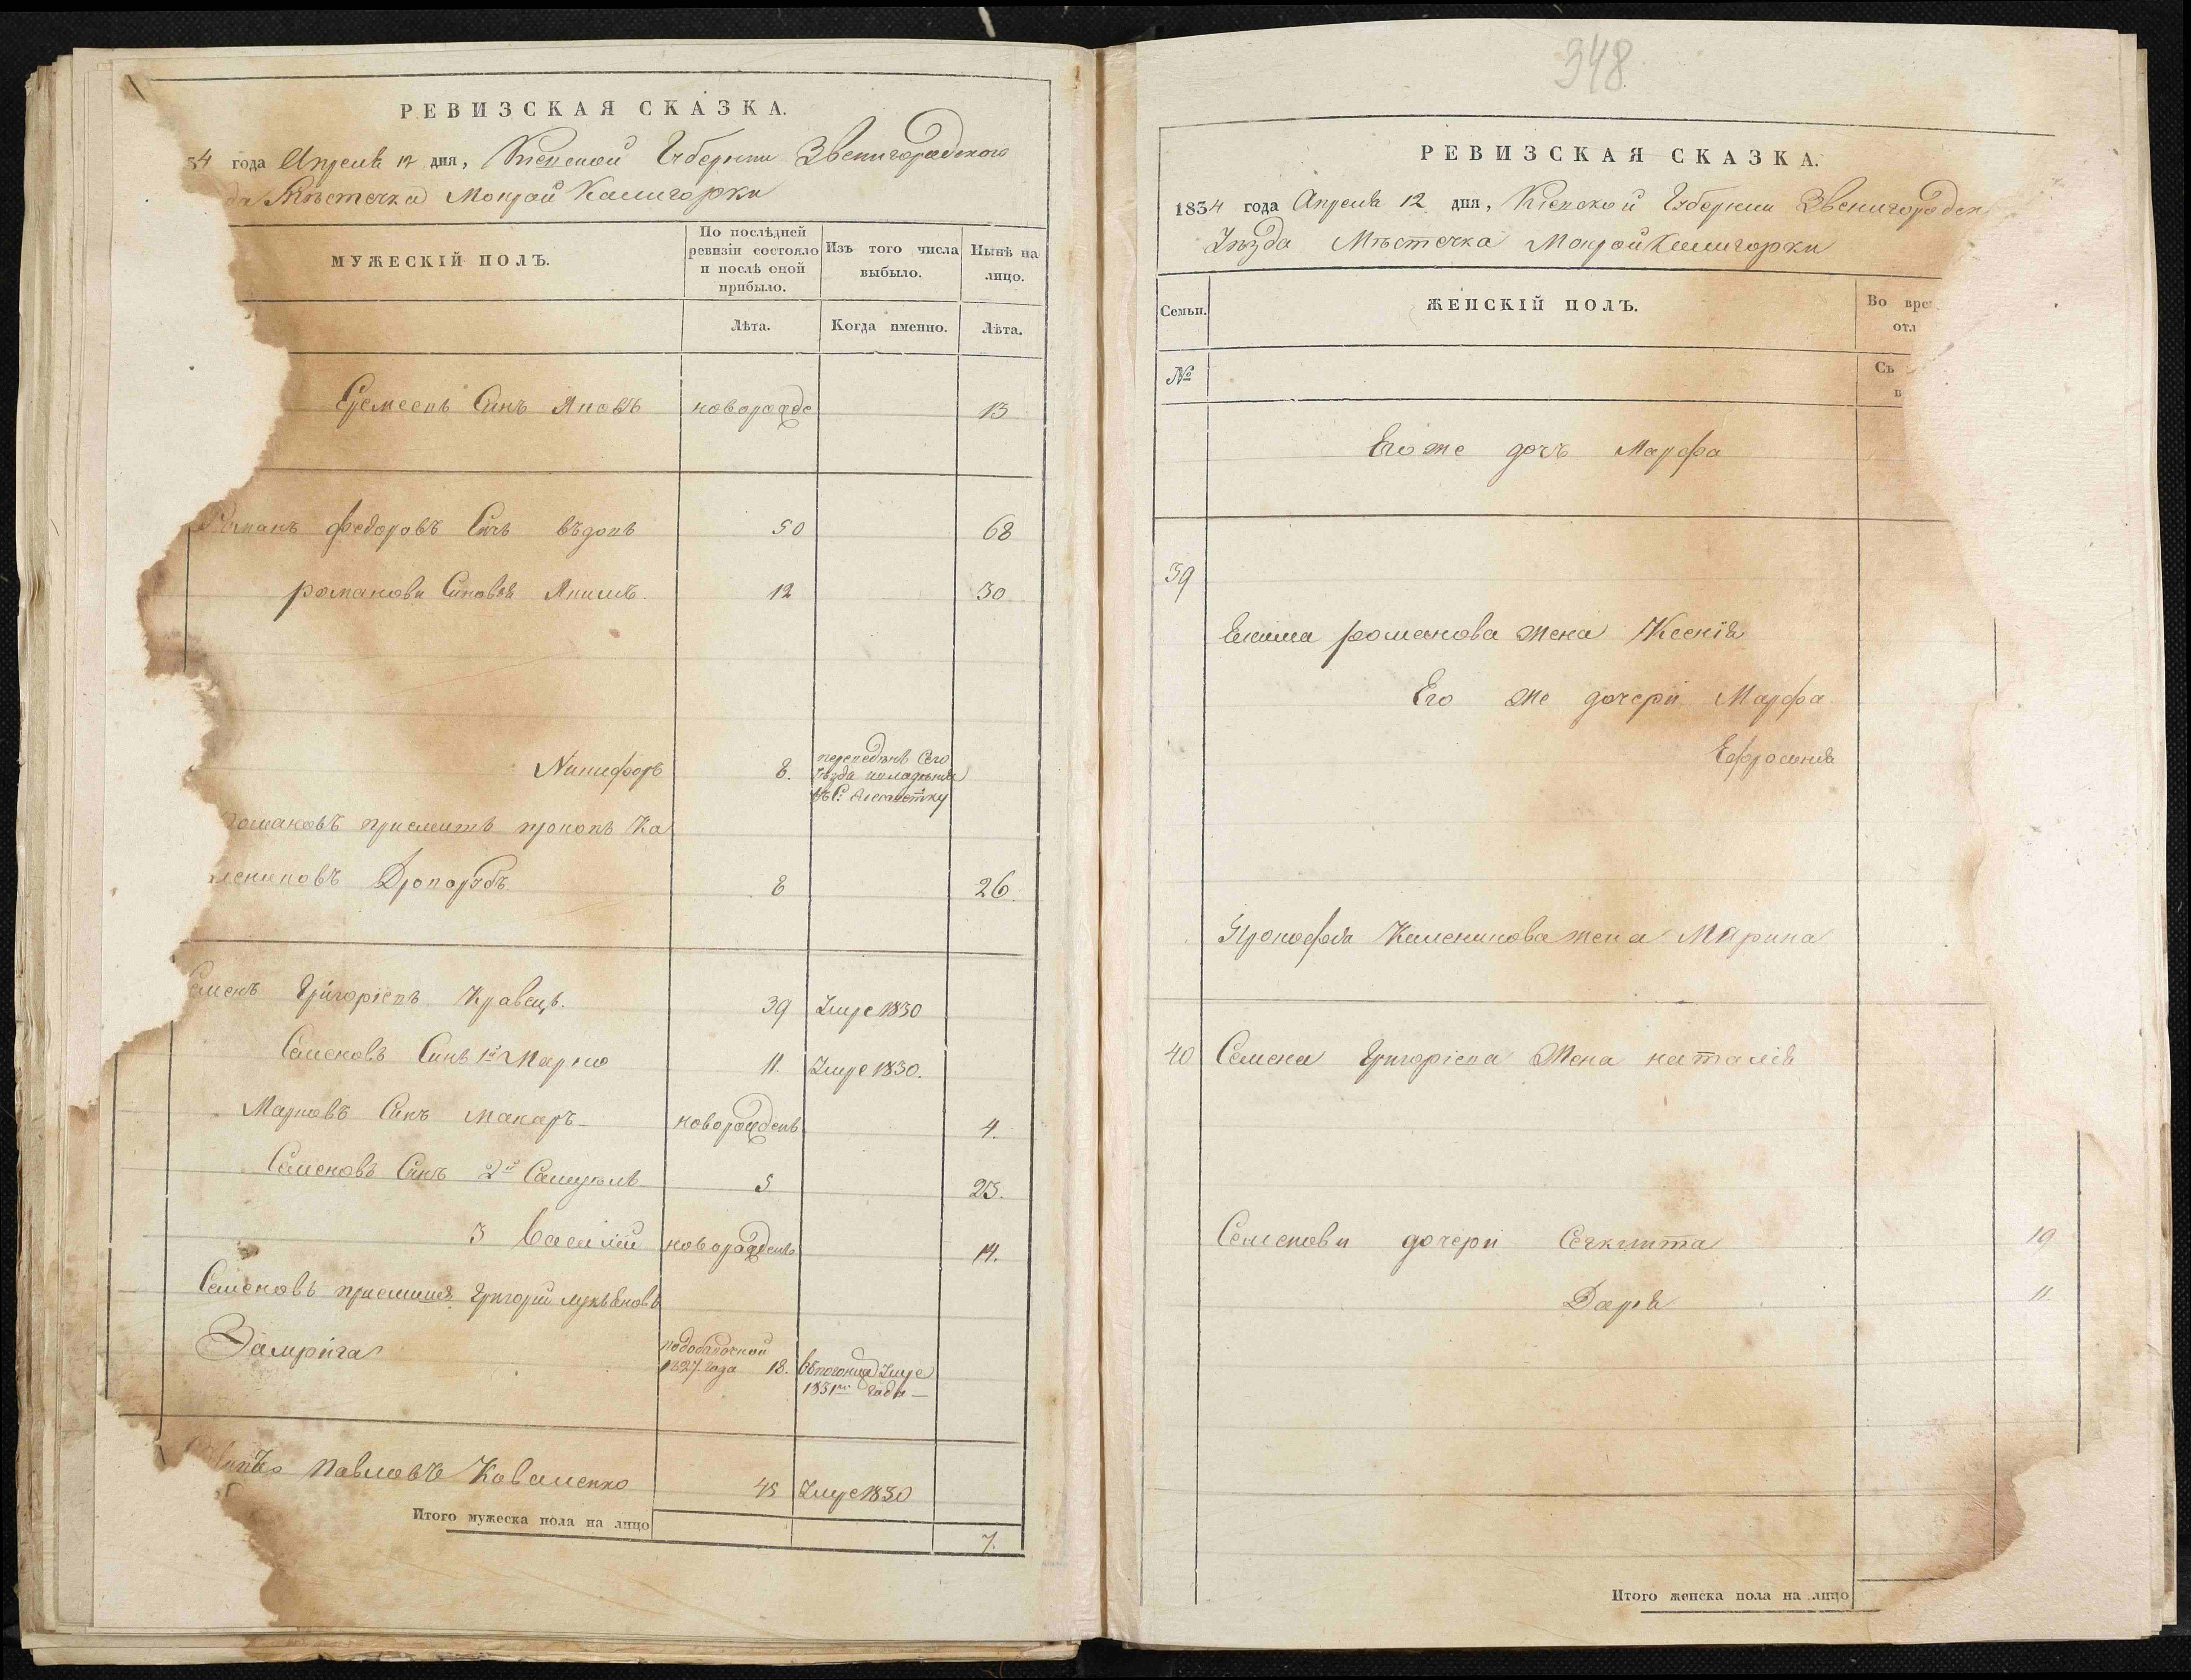 РЕВИЗСКАЯ СКАЗКА.
34 года Апреля 12 дня, Киевской Губернии Звенигородского
да Мѣстечка Мокрой Калигорки
МУЖЕСКІЙ ПОЛЪ.
По послѣдней ревизіи состояло и послѣ оной прибыло.
Изъ того числа выбыло.
Нынѣ на лицо.
Лѣта.
Когда именно.
Лѣта.
Еремеевъ Синъ Яковъ новорожде 13
Романъ Федоровъ Синъ 50 68
романови Синовья Якимъ. 12 30
Никифоръ 8. переведенъ Сего
уѣзда
въ С:
романовъ приемишъ прокопъ Ка
лениковъ 8 26.
Семенъ Григоріевъ Кравецъ. 39 Умре 1830
Семеновъ Синъ 1й Марко 11. Умре 1830.
Марковъ Синъ Макаръ 4.
Семеновъ Синъ 2й Самуилъ 5 23.
3 Василий 14.
Семеновъ приемишъ Григорий лукьяновъ
Замрига
1827 года 18. Умре
1831го года
Павловъ Коваленко 45 Умре 1830
Итого мужеска пола на лицо 7.
348
РЕВИЗСКАЯ СКАЗКА.
1834 года Апреля 12 дня, Киевской Губернии Звенигородск
Уѣзда Мѣстечка Мокрой Калигорки
Семьи.
ЖЕНСКІЙ ПОЛЪ.
Во вре
отл
№
Съ
в
Его же дочь Марфа
39
Екима романова жена Ксенія
Его же дочери Марфа.
Ефросинія
Прокофія Каленикова жена Марина
40 Семена Григоріева Жена наталія
Семенови дочери 19
Дарія 11
Итого женска пола на лицо